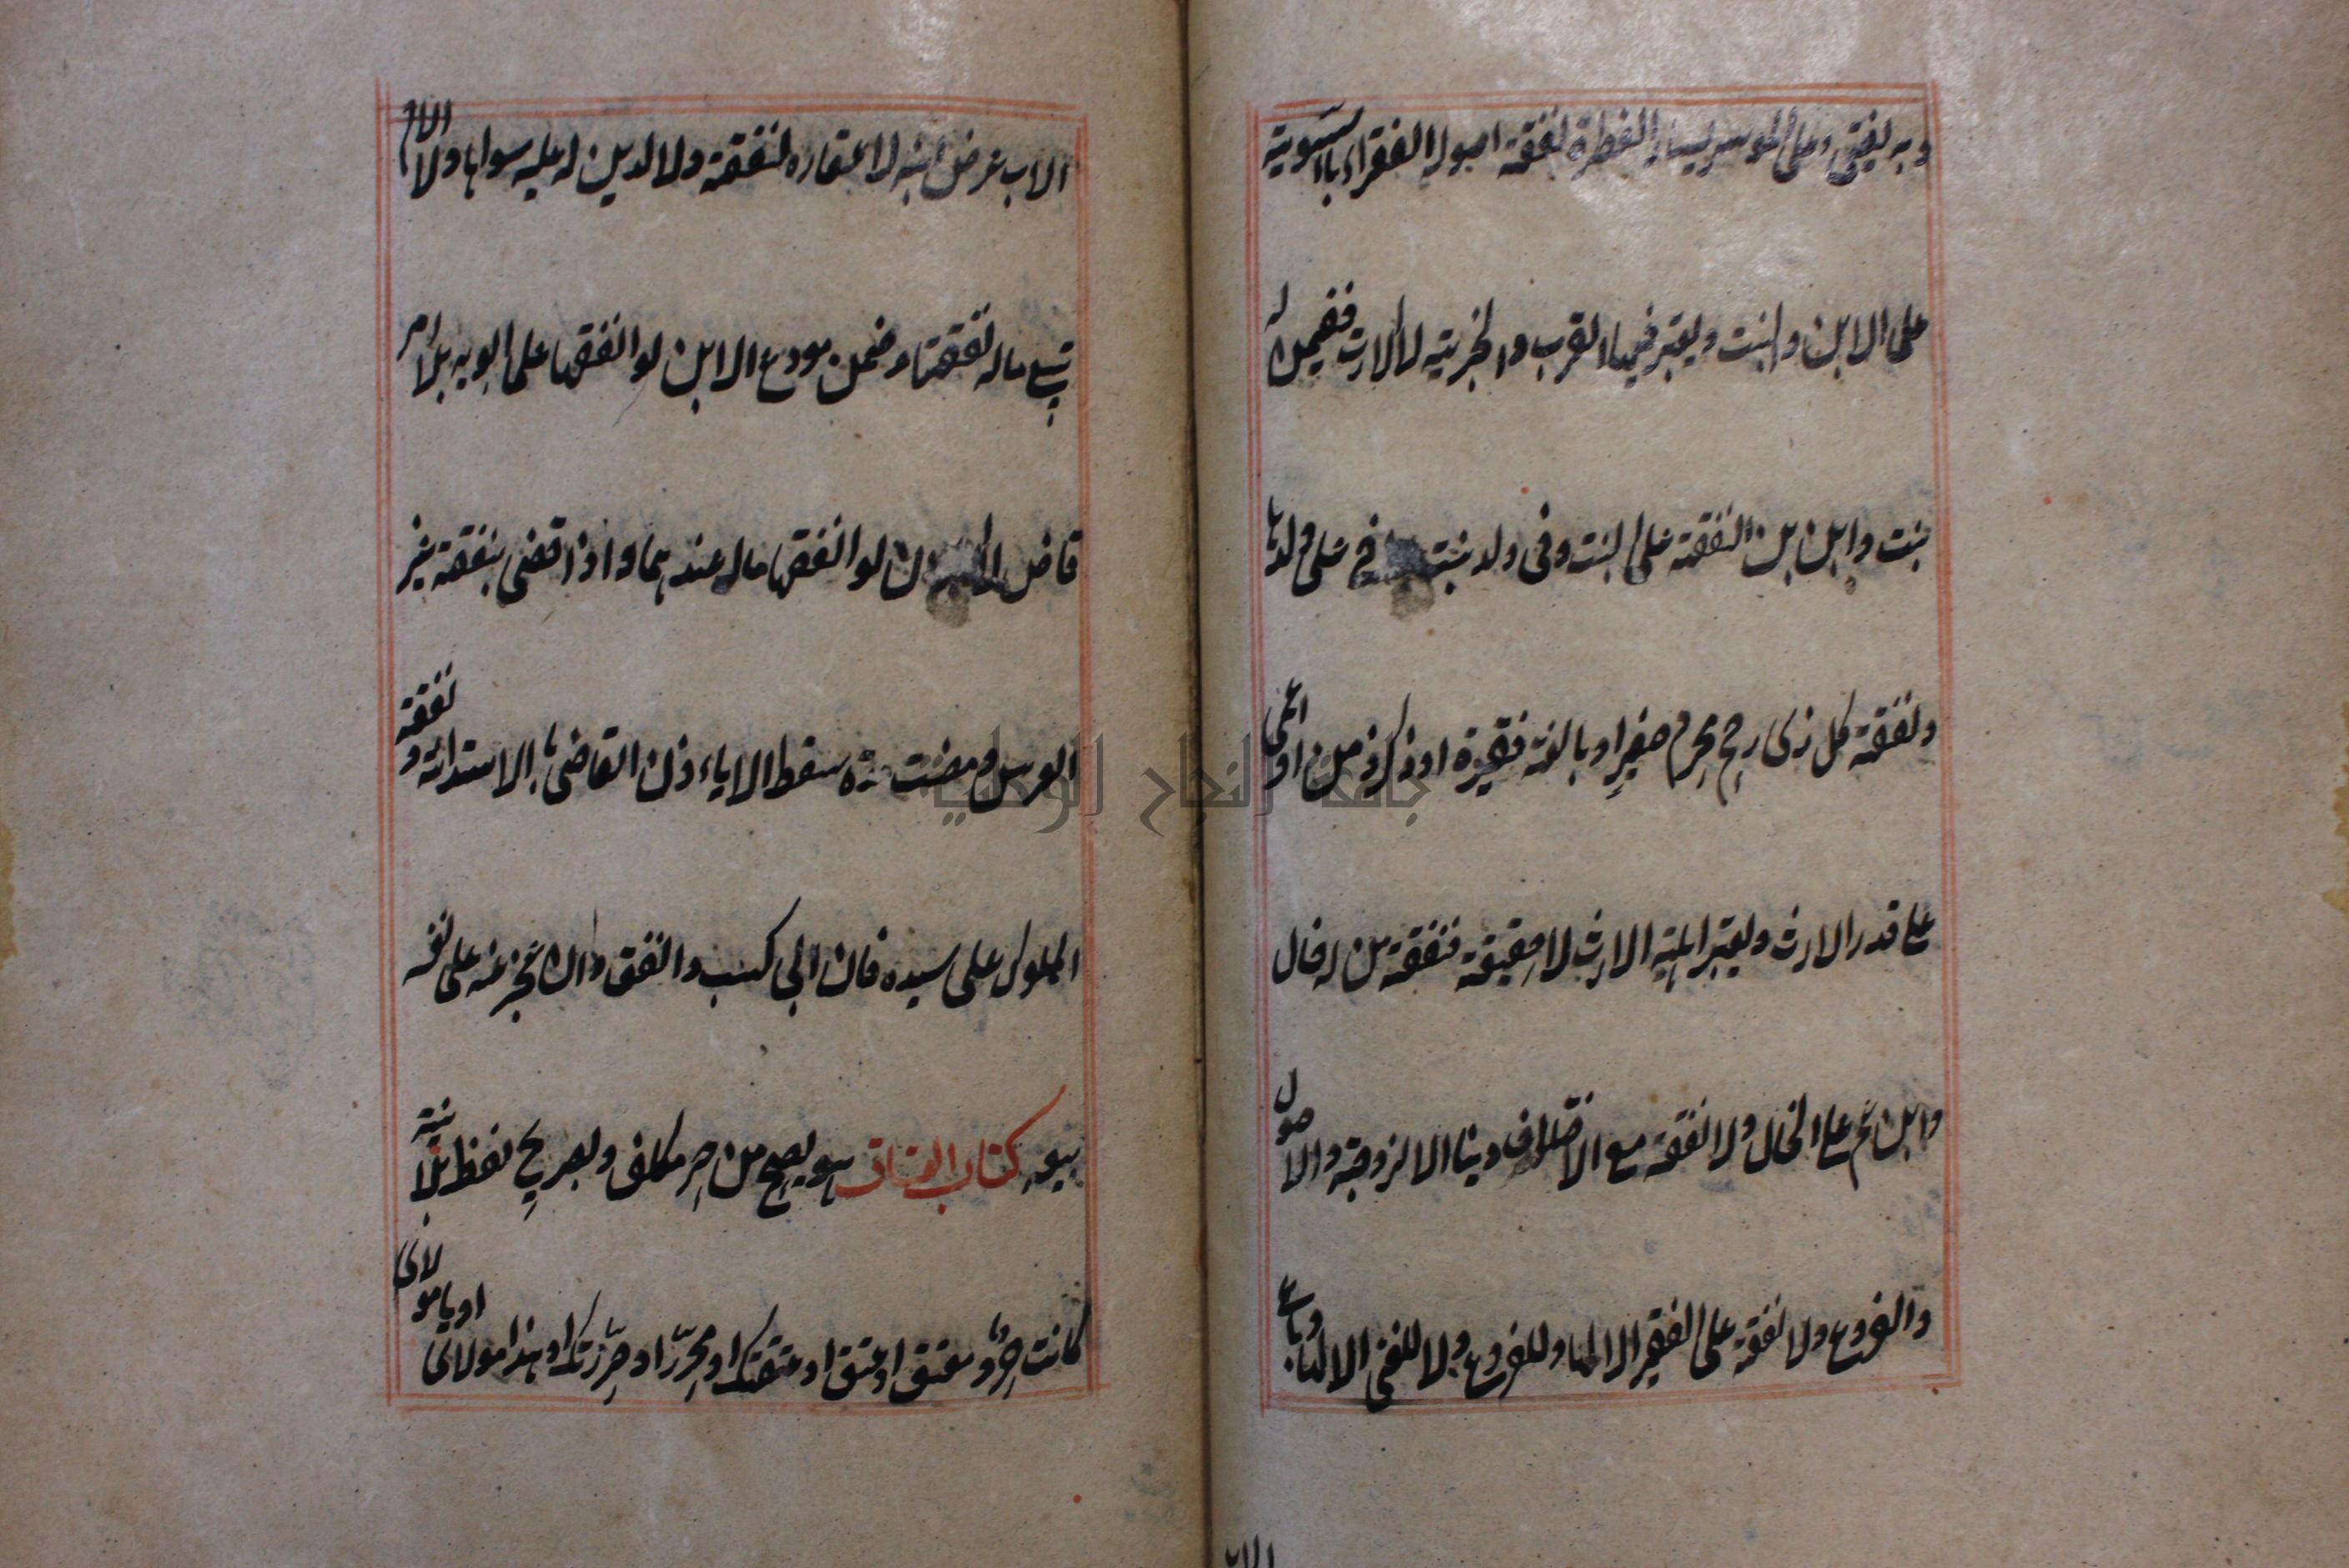 وبه يفتى وعلى الموسر يسار الفطرة نفقة اصوله الفقراء بالسوية
على الابن والبنت ويعتبر فيها القرب والجزئية لا الارث ففيمن له
بنت وابن ابن النفقة على البنت وفى ولد بنت واخ على ولدها
ونفقة كل ذى رحم محرم صغير او بالغة فقيرة او ذكر زمن او اعمى
على قدر الارث ويعتبر اهلية الارث لا حقيقته فنفقة من له خال
وابن عم على الخال ولا نفقة مع الاختلاف دينا الا لزوجة والاصول
والفروع ولا نفقة على الفقير الا لها وللفروع ولا للغنى الا لها وباع
الاب
الاب عرض ابنه لا عقاره لنفقة ولا لدين له عليه سواها ولا الام
تبيع ماله لنفقتها وضمن مودع الابن لو انفقها على ابويه بلا امر
قاض لا الابوان لو انفقا ماله عندهما واذا قضى بنفقة غير
العرس ومضت مدة سقط الا باذن القاضى بالاستدانة ونفقة
المملوك على سيده فان ابى كسب وانفق وان عجز عنه على نفسه
بيع كتاب العتاق هو يصح من حر مكلف وبصريح لفظ بلا نية
كانت حر ومعتق او عتق او عتقتك او محرر او حررتك او هذا مولاى او يا مولاى
جامعة النجاح الوطنية